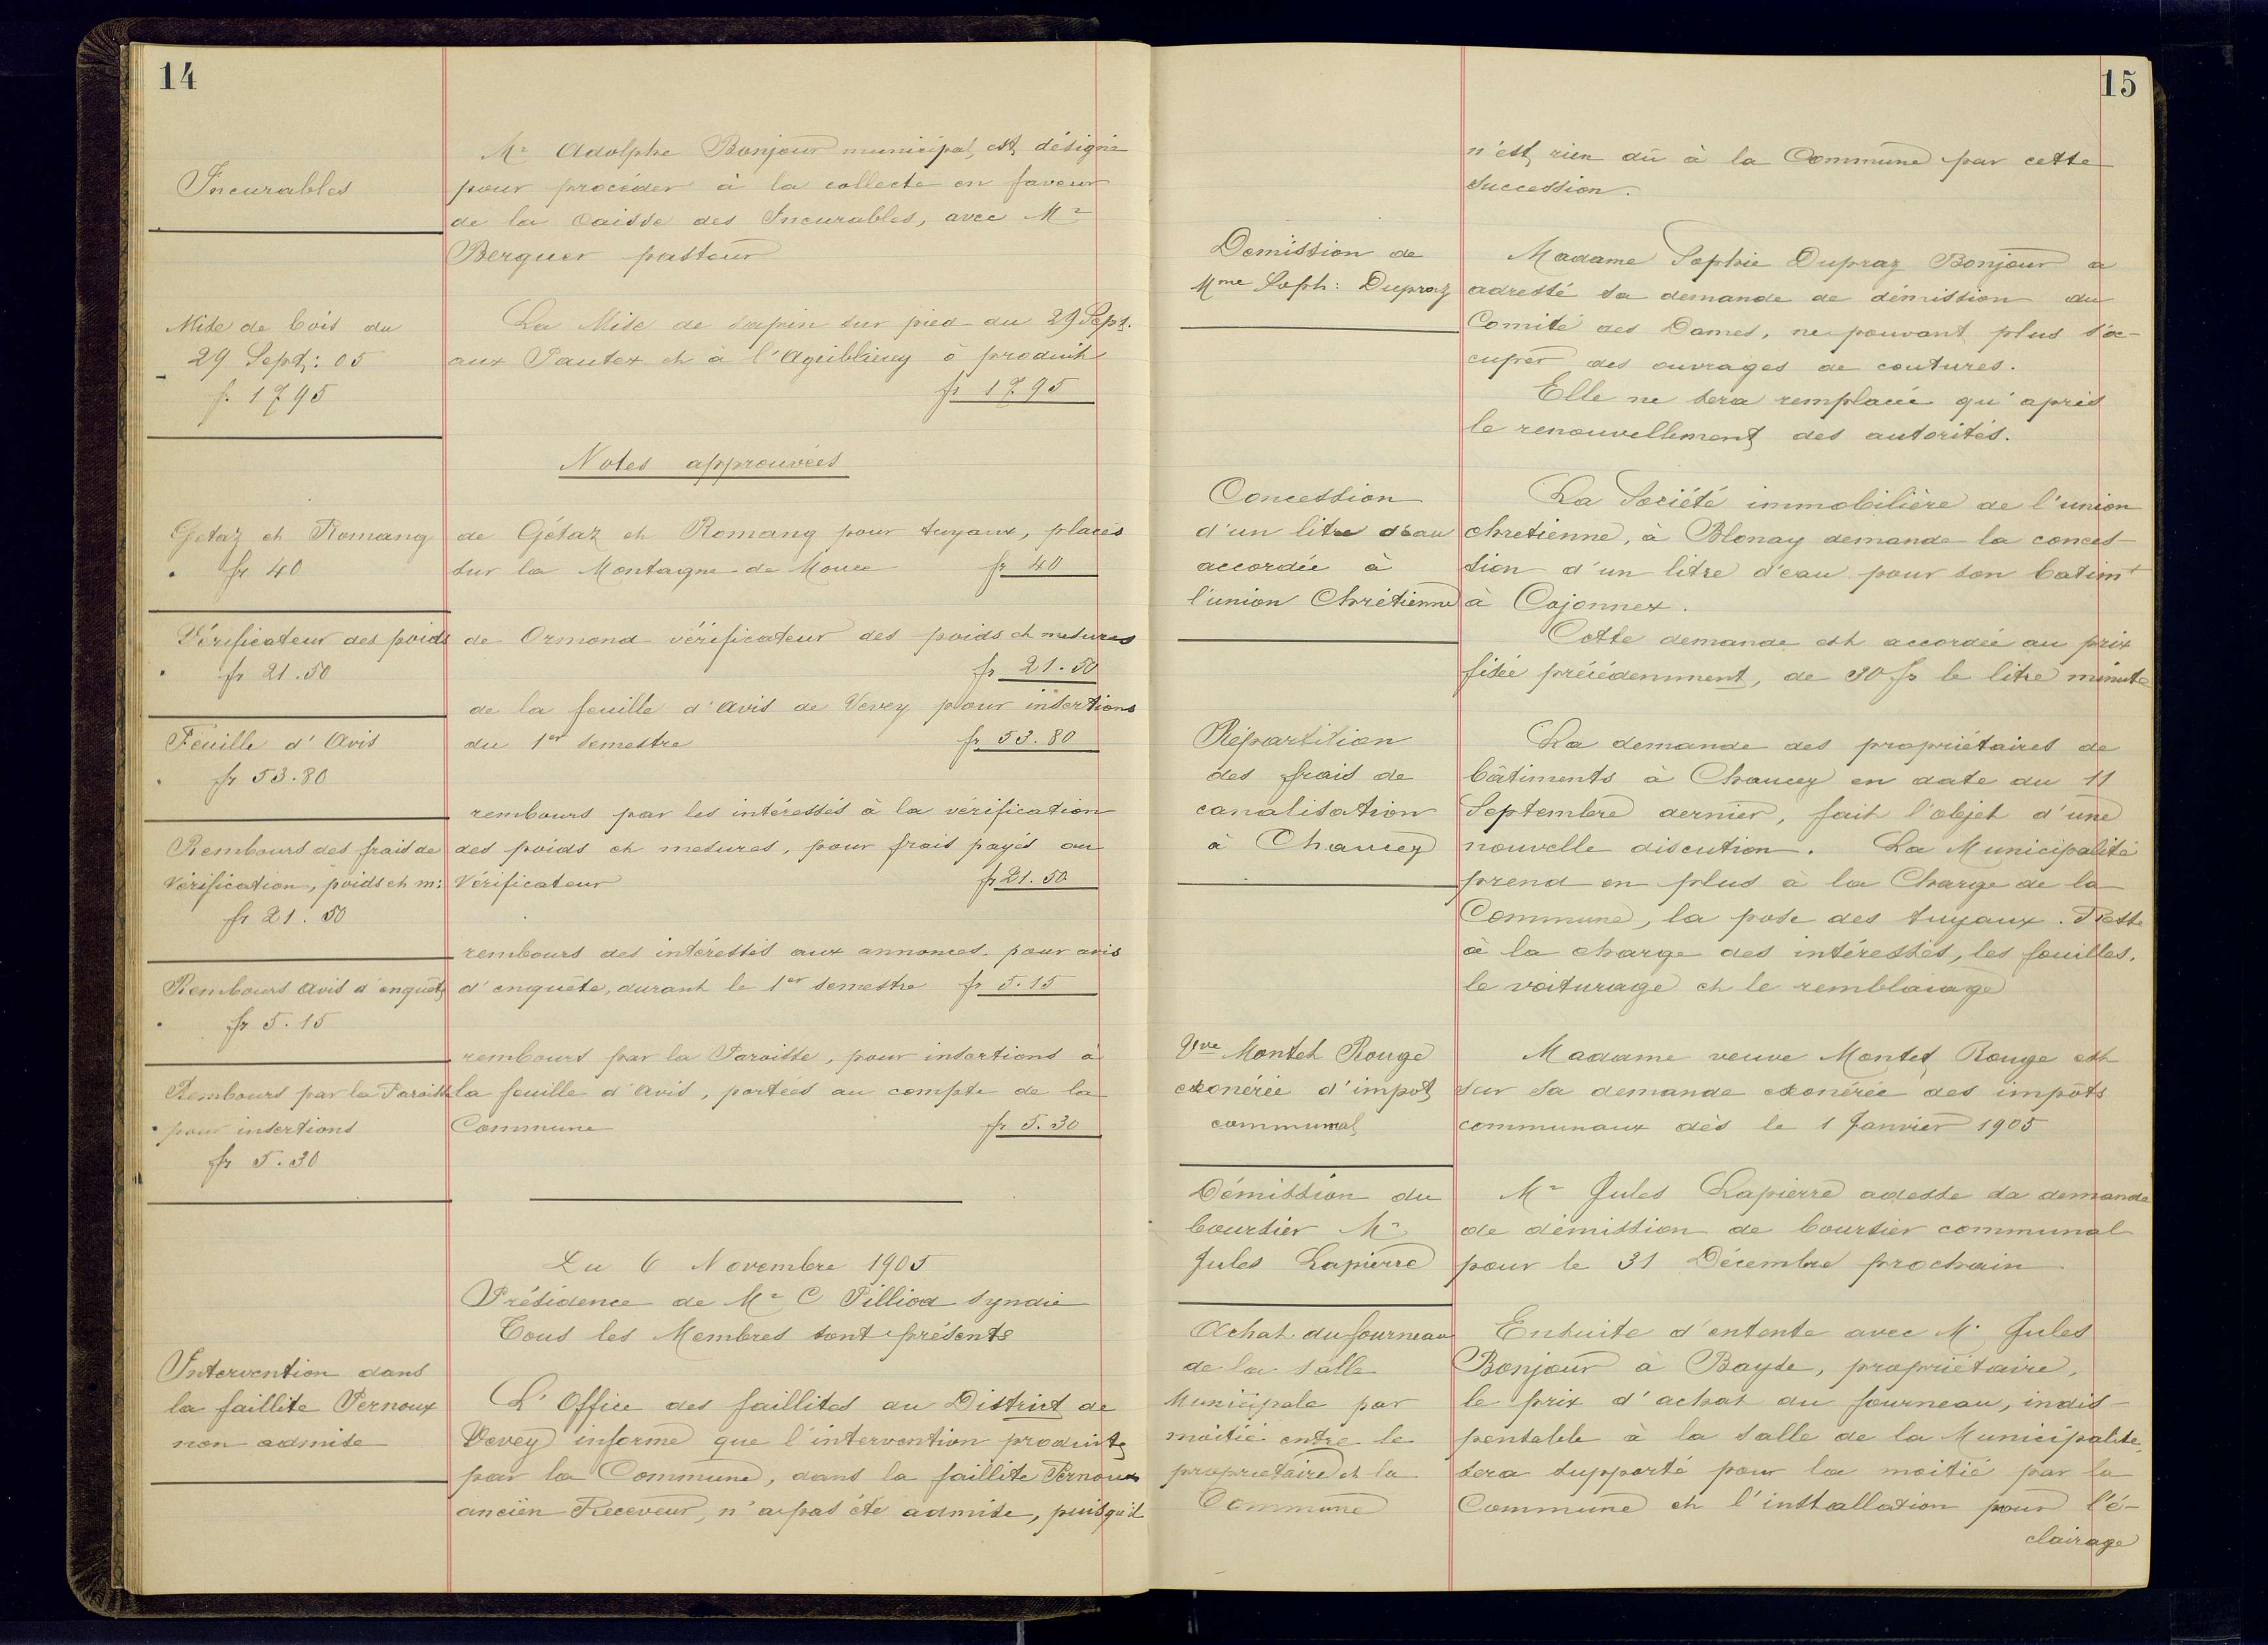 14
Incurables
Mr Adolphe Bonjour municipal est désigné
pour procéder à la collecte en faveur
de la Caisse des Incurables, avec Mr
Berguer pasteur
Mise de bois du
29 Sept: 05
f. 1795
La Mise de sapin sur pied du 29 Sept.
aux Pautex et à l'Aguibllieuy à produit
fr 1795
Notes approuvées
Getaz et Romang
fr 40
de Gétaz et Romang pour tuyaux, placés
sur la Montagne de Mouce fr 40
Vérificateur des poids
fr 21.50
de Ormond vérificateur des poids et mesures
fr 21.50
Feuille d'Avis
fr 53.80
de la feuille d'avis de Vevey pour insertions
du 1er semestre fr 53.80
Rembours des frais de
Vérification, poids et m:
fr 21.50
rembours par les intéressés à la vérification
des poids et mesures, pour frais payés au
Vérificateur fr 21.50
Rembours Avis d'enquête
fr 5.15
rembours des intéressés aux annonces, pour avis
d'enquête, durant le 1er semestre fr 5.15
Rembours par la Paroisse
pour insertions
fr 5.30
rembours par la Paroisse, pour insertions à
la feuille d'avis, portées au compte de la
Commune fr 5.30
Du 6 Novembre 1905
Présidence de Mr C Pilliod Syndic
Tous les Membres sont présents
Intervention dans
la faillite Pernoux
non admise
L'Office des faillites du District de
Vevey informe que l'intervention produite
par la Commune, dans la faillite Pernoux
ancien Receveur, n'a pas été admise, puisqu'il
15
n'est rien dû à la Commune par cette
succession.
Demission de
Mme Soph: Dupraz
Madame Sophie Dupraz Bonjour a
adressé sa demande de démission du
Comité des Dames, ne pouvant plus s'o-
cuper des ouvrages de coutures.
Elle ne sera remplacée qu'après
le renouvellement des autorités.
Concession
d'un litre d'eau
accordée à
l'union Chrétienne
La Société immobilière de l'union
chretienne, à Blonay demande la conces-
sion d'un litre d'eau pour son batimt
à Cojonnex.
Cette demande est accordée au prix
fixée précédemment, de 30 fr le litre minute
Répartition
des frais de
canalisation
à Chaucey
La demande des propriétaires de
bâtiments à Chaucey en date du 11
Septembre dernier, fait l'objet d'une
nouvelle discution. La Municipalité
prend en plus à la Charge de la
Commune, la pose des tuyaux. Reste
à la charge des intéressés, les fouilles,
le voiturage et le remblaiage
Vve Montet Rouge
exonérée d'impot
communal
Madame veuve Montet Rouge est
sur sa demande exonérée des impôts
communaux dès le 1 Janvier 1905
Démission du
boursier Mr
Jules Lapierre
Mr Jules Lapierre adresse sa demande
de démission de boursier communal
pour le 31 Décembre prochain
Achat du fourneau
de la salle
Municipale par
moitié entre le
propriétaire et la
Commune
Ensuite d'entente avec M. Jules
Bonjour à Bayse, propriétaire,
le prix d'achat du fourneau, indis-
pensable à la salle de la Municipalité,
sera supporté pour la moitié par la
Commune et l'installation pour l'é-
clairage